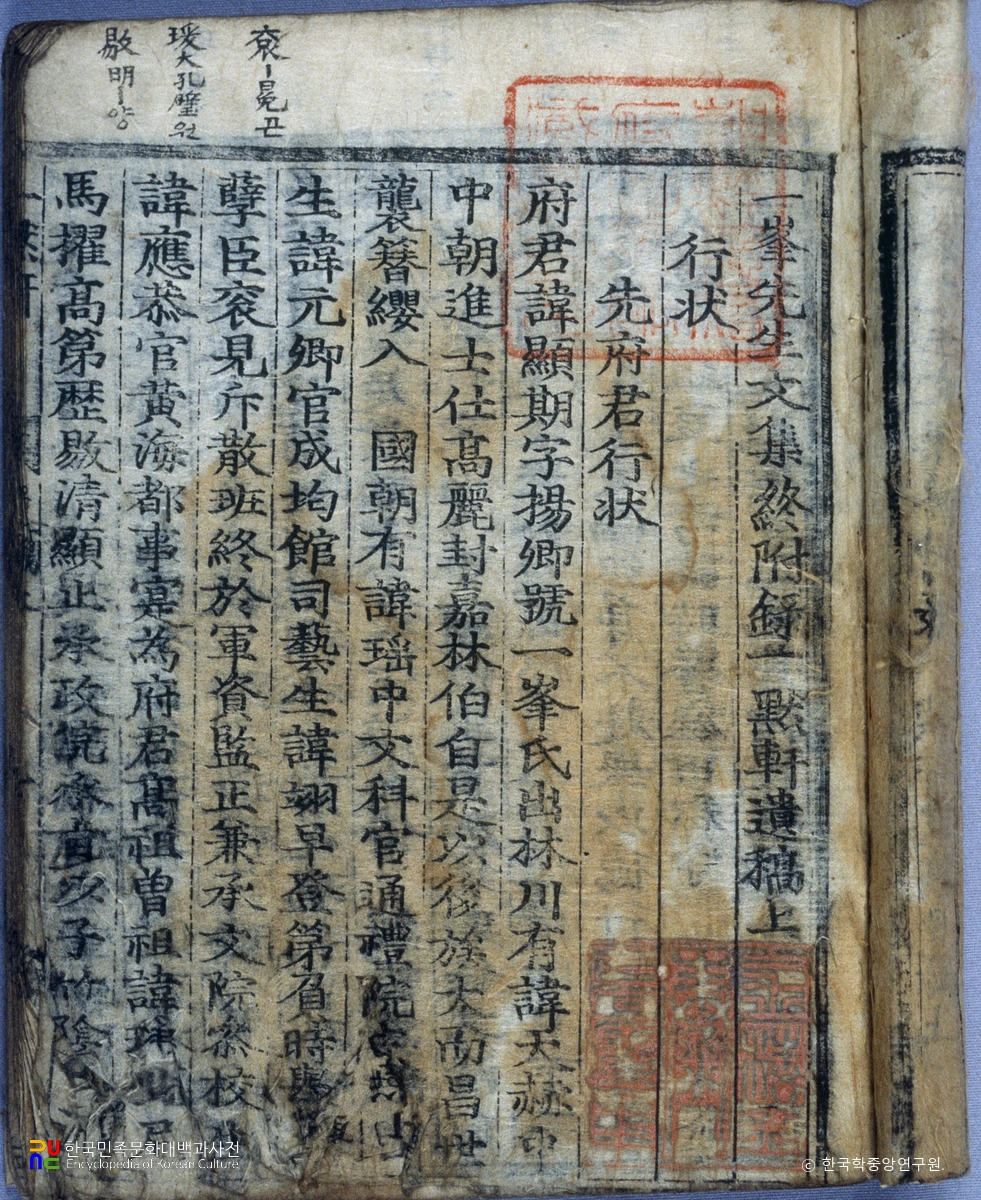 一峯先生文集終附錄一 默軒遺稿上
行狀
先府君行狀
府君諱顯期字揚卿號一峯氏出林川有諱天赫中
中朝進士仕高麗封嘉林伯自是以後族大而昌世
襲簪纓入 國朝有諱瑶中文科官通禮院
生諱元卿官成均館司藝生諱翊早登第負時
孽臣衮見斥散班終於軍資監正兼承文院叅校
諱應恭官黃海都事寔爲府君高祖曾祖諱
馬擢高第歷敭清顯止承政院 以子竹陰
衮ㅣ冕곤
瑗大孔璧원
敭明ㅣ양
한국민족문화대백과사전
Encyclopedia of Korean Culture
© 한국학중앙연구원